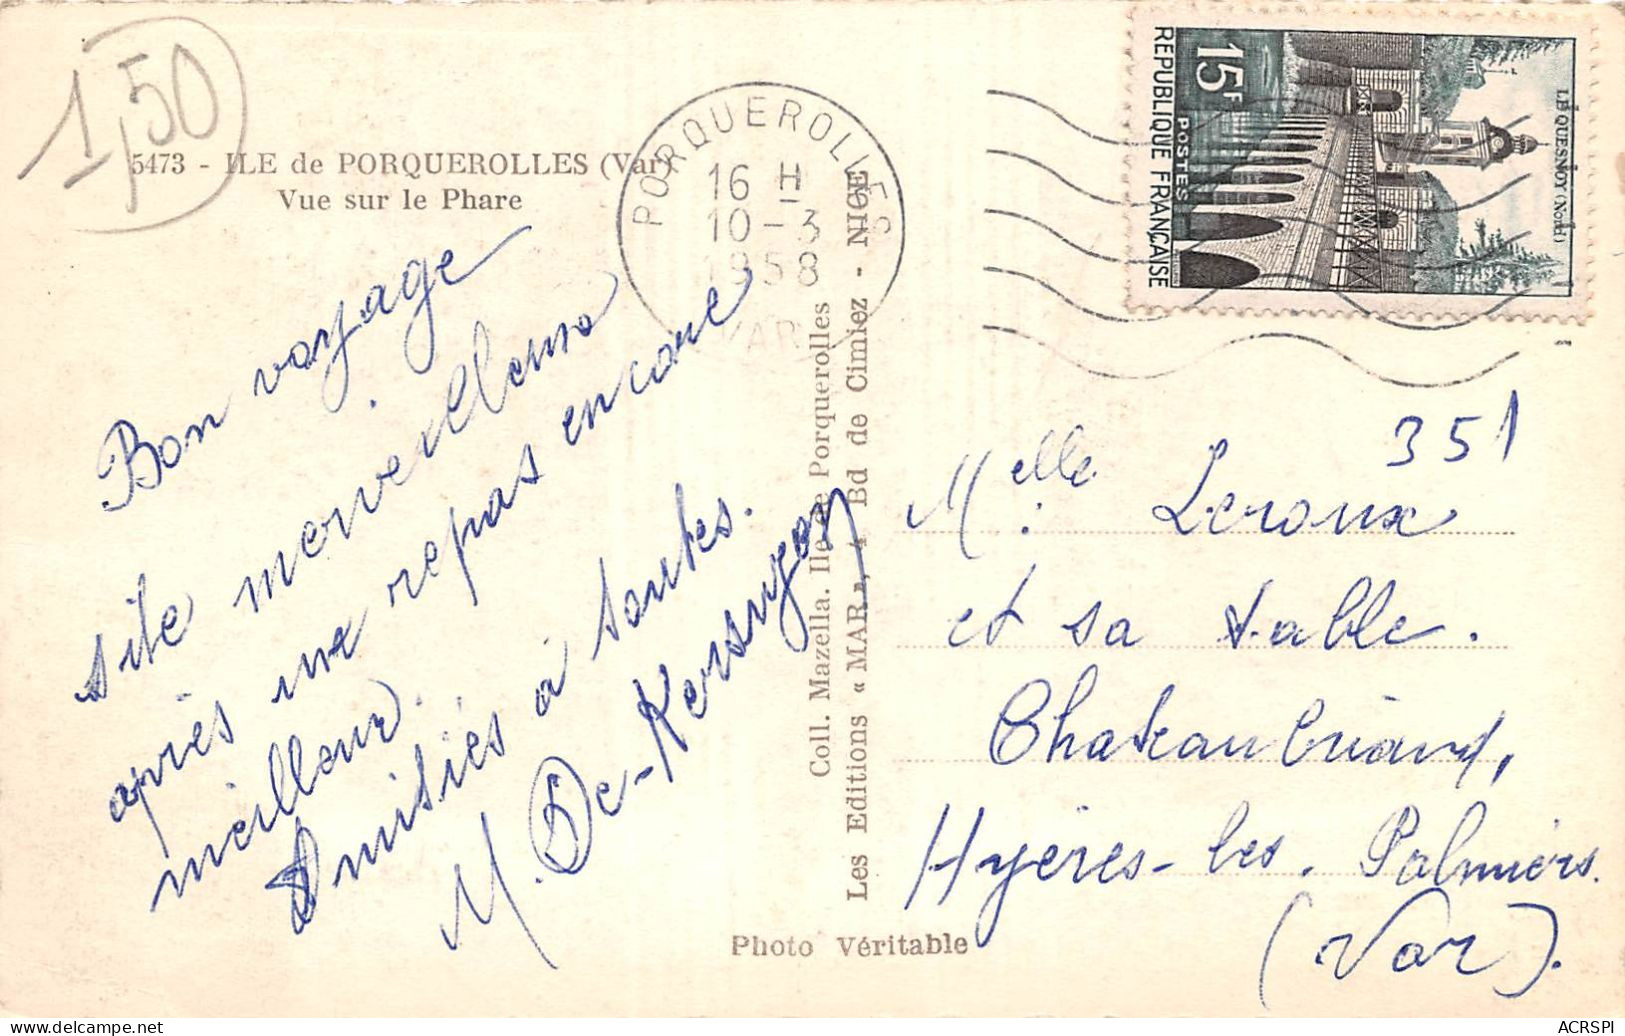 1,50
5473 - ILE de PORQUEROLLES (Var)
Vue sur le Phare
PORQUEROLLES
16 H
10 - 3
1958
VAR
15F
POSTES
REPUBLIQUE FRANÇAISE
LE QUESNOY (Nord)
Bon voyage
site merveilleux
après un repas encore
meilleur.
Amitiés à toutes.
M. De-Kersuzon
Coll. Mazella. Ile de Porquerolles
Les Editions « MAR », 4 Bd de Cimiez - NICE
351
Melle Leroux
et sa table.
Chateaubriand,
Hyères-les-Palmiers.
(Var).
Photo Véritable
ACRSPI